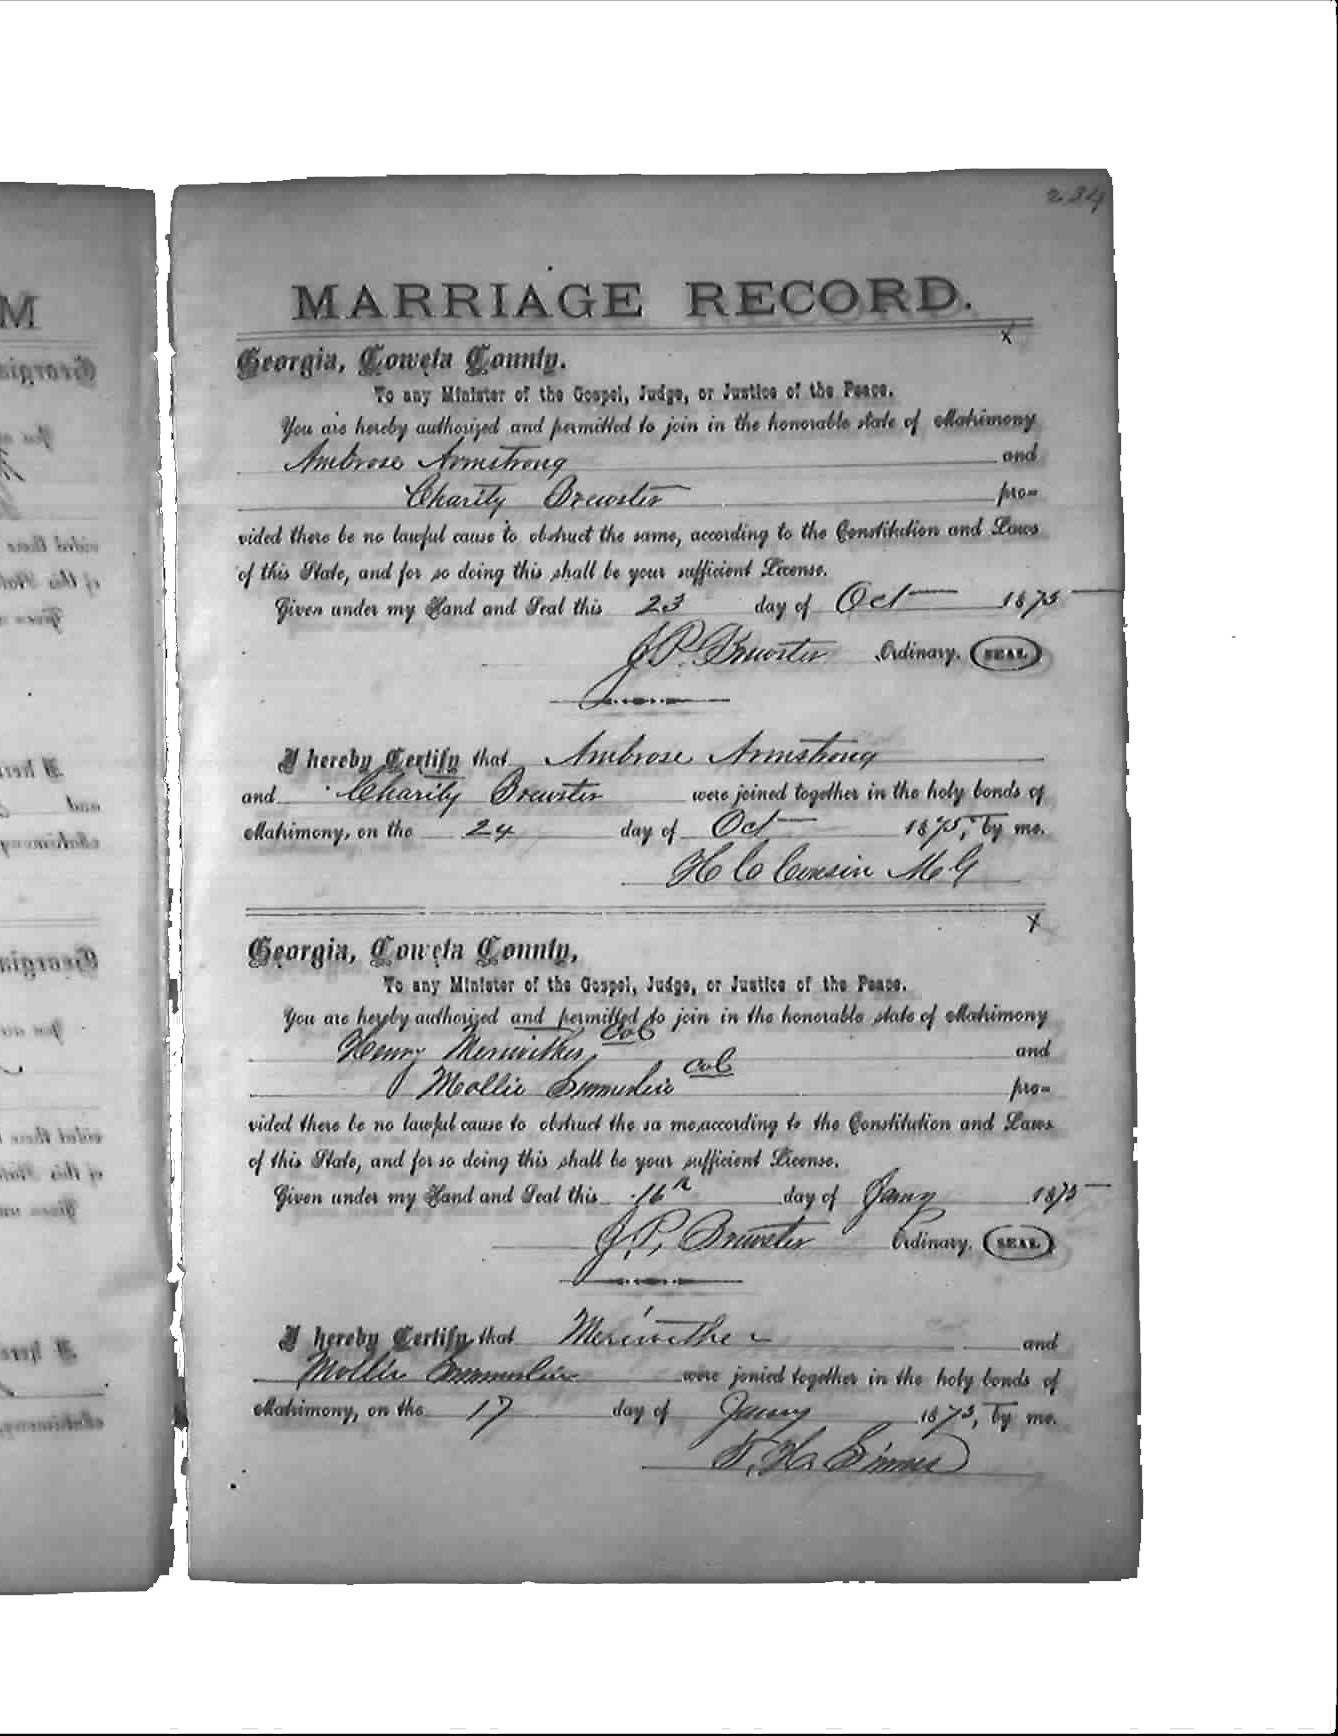 234
MARRIAGE RECORD.
x
Georgia, Coweta County.
To any Minister of the Gospel, Judge, or Justice of the Peace.
You are hereby authorized and permitted to join in the honorable state of Matrimony
Ambrose Armstrong and
Charity Brewster pro-
vided there be no lawful cause to obstruct the same, according to the Constitution and Laws
of this State, and for so doing this shall be your sufficient License.
Given under my Hand and Seal this 23 day of Oct 1875
J. P. Brewster Ordinary. SEAL
I hereby Certify that Ambrose Armstrong
and Charity Brewster were joined together in the holy bonds of
Matrimony, on the 24 day of Oct 1875, by me.
H C Cousin M G
x
Georgia, Coweta County,
To any Minister of the Gospel, Judge, or Justice of the Peace.
You are hereby authorized and permitted to join in the honorable state of Matrimony
Henry Meriwither Col and
Mollie col pro-
vided there be no lawful cause to obstruct the sa me, according to the Constitution and Laws
of this State, and for so doing this shall be your sufficient License.
Given under my Hand and Seal this 16th day of Jany 1875
J. P. Brewster Ordinary. SEAL
I hereby Certify that Meriwither and
Mollie were jonied together in the holy bonds of
Matrimony, on the 17 day of Jany 1875, by me.